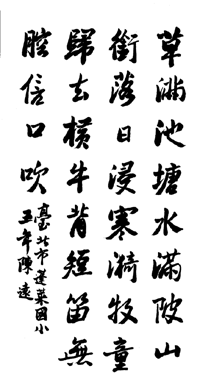 草滿池塘水滿陂山
銜落日浸寒漪牧童
歸去橫牛背短笛無
腔信口吹
臺北市蓬萊國小
五年陳遠